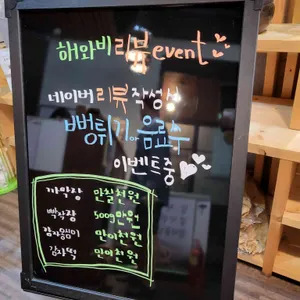 해와비 리뷰 event
네이버 리뷰 작성상
뻥튀기 or 음료수
이벤트중
까악장 만칠천원
빡작장 500만원
감자옹심이 만이천원
감자떡 만이천원